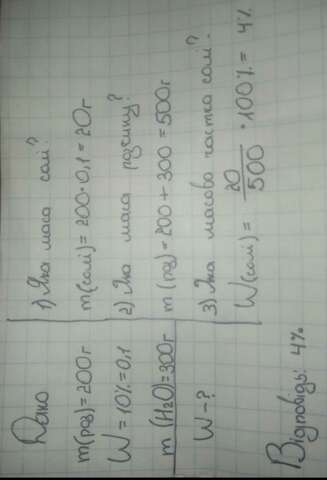 Дано
m(роз)=200г
W = 10%=0,1
m (H2O)=300г
W-?
1) Яка маса солі?
m(солі) = 200·0,1 = 20г
2) Яка маса розчину?
m (роз) = 200 + 300 = 500г
3) Яка масова частка солі?
W(солі) = 20/500 · 100% = 4%
Відповідь: 4%